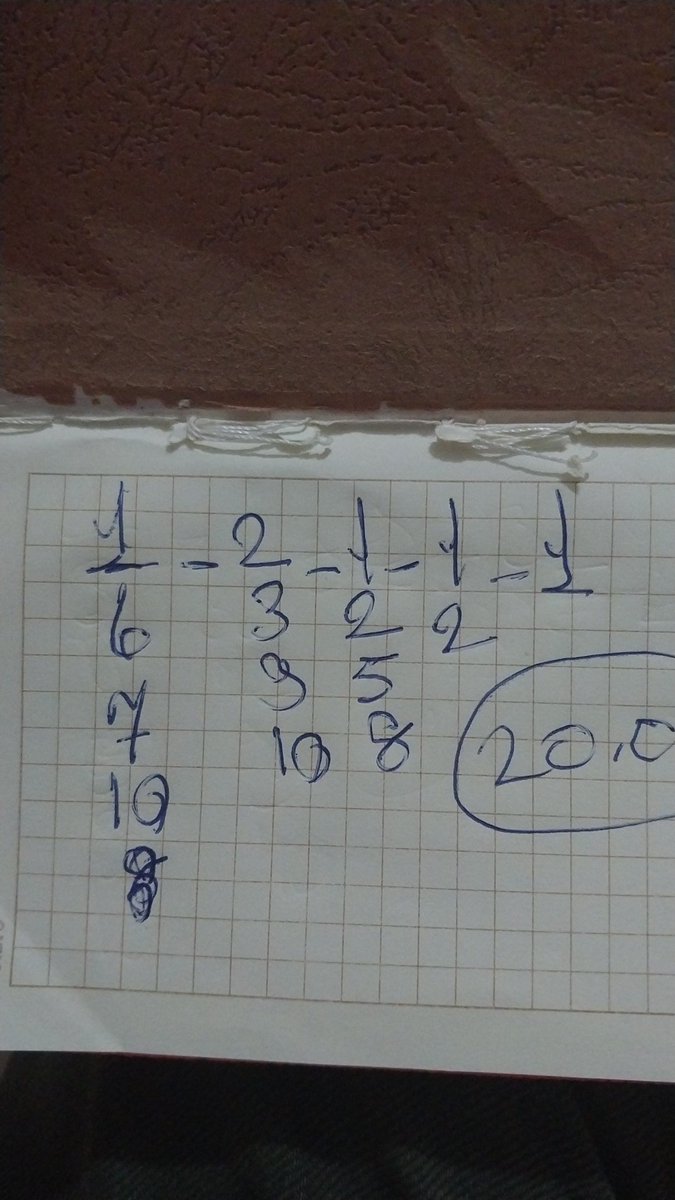 1 - 2 - 1 - 1 - 1
6 3 2 2
7 9 5
10 10 8 20.0